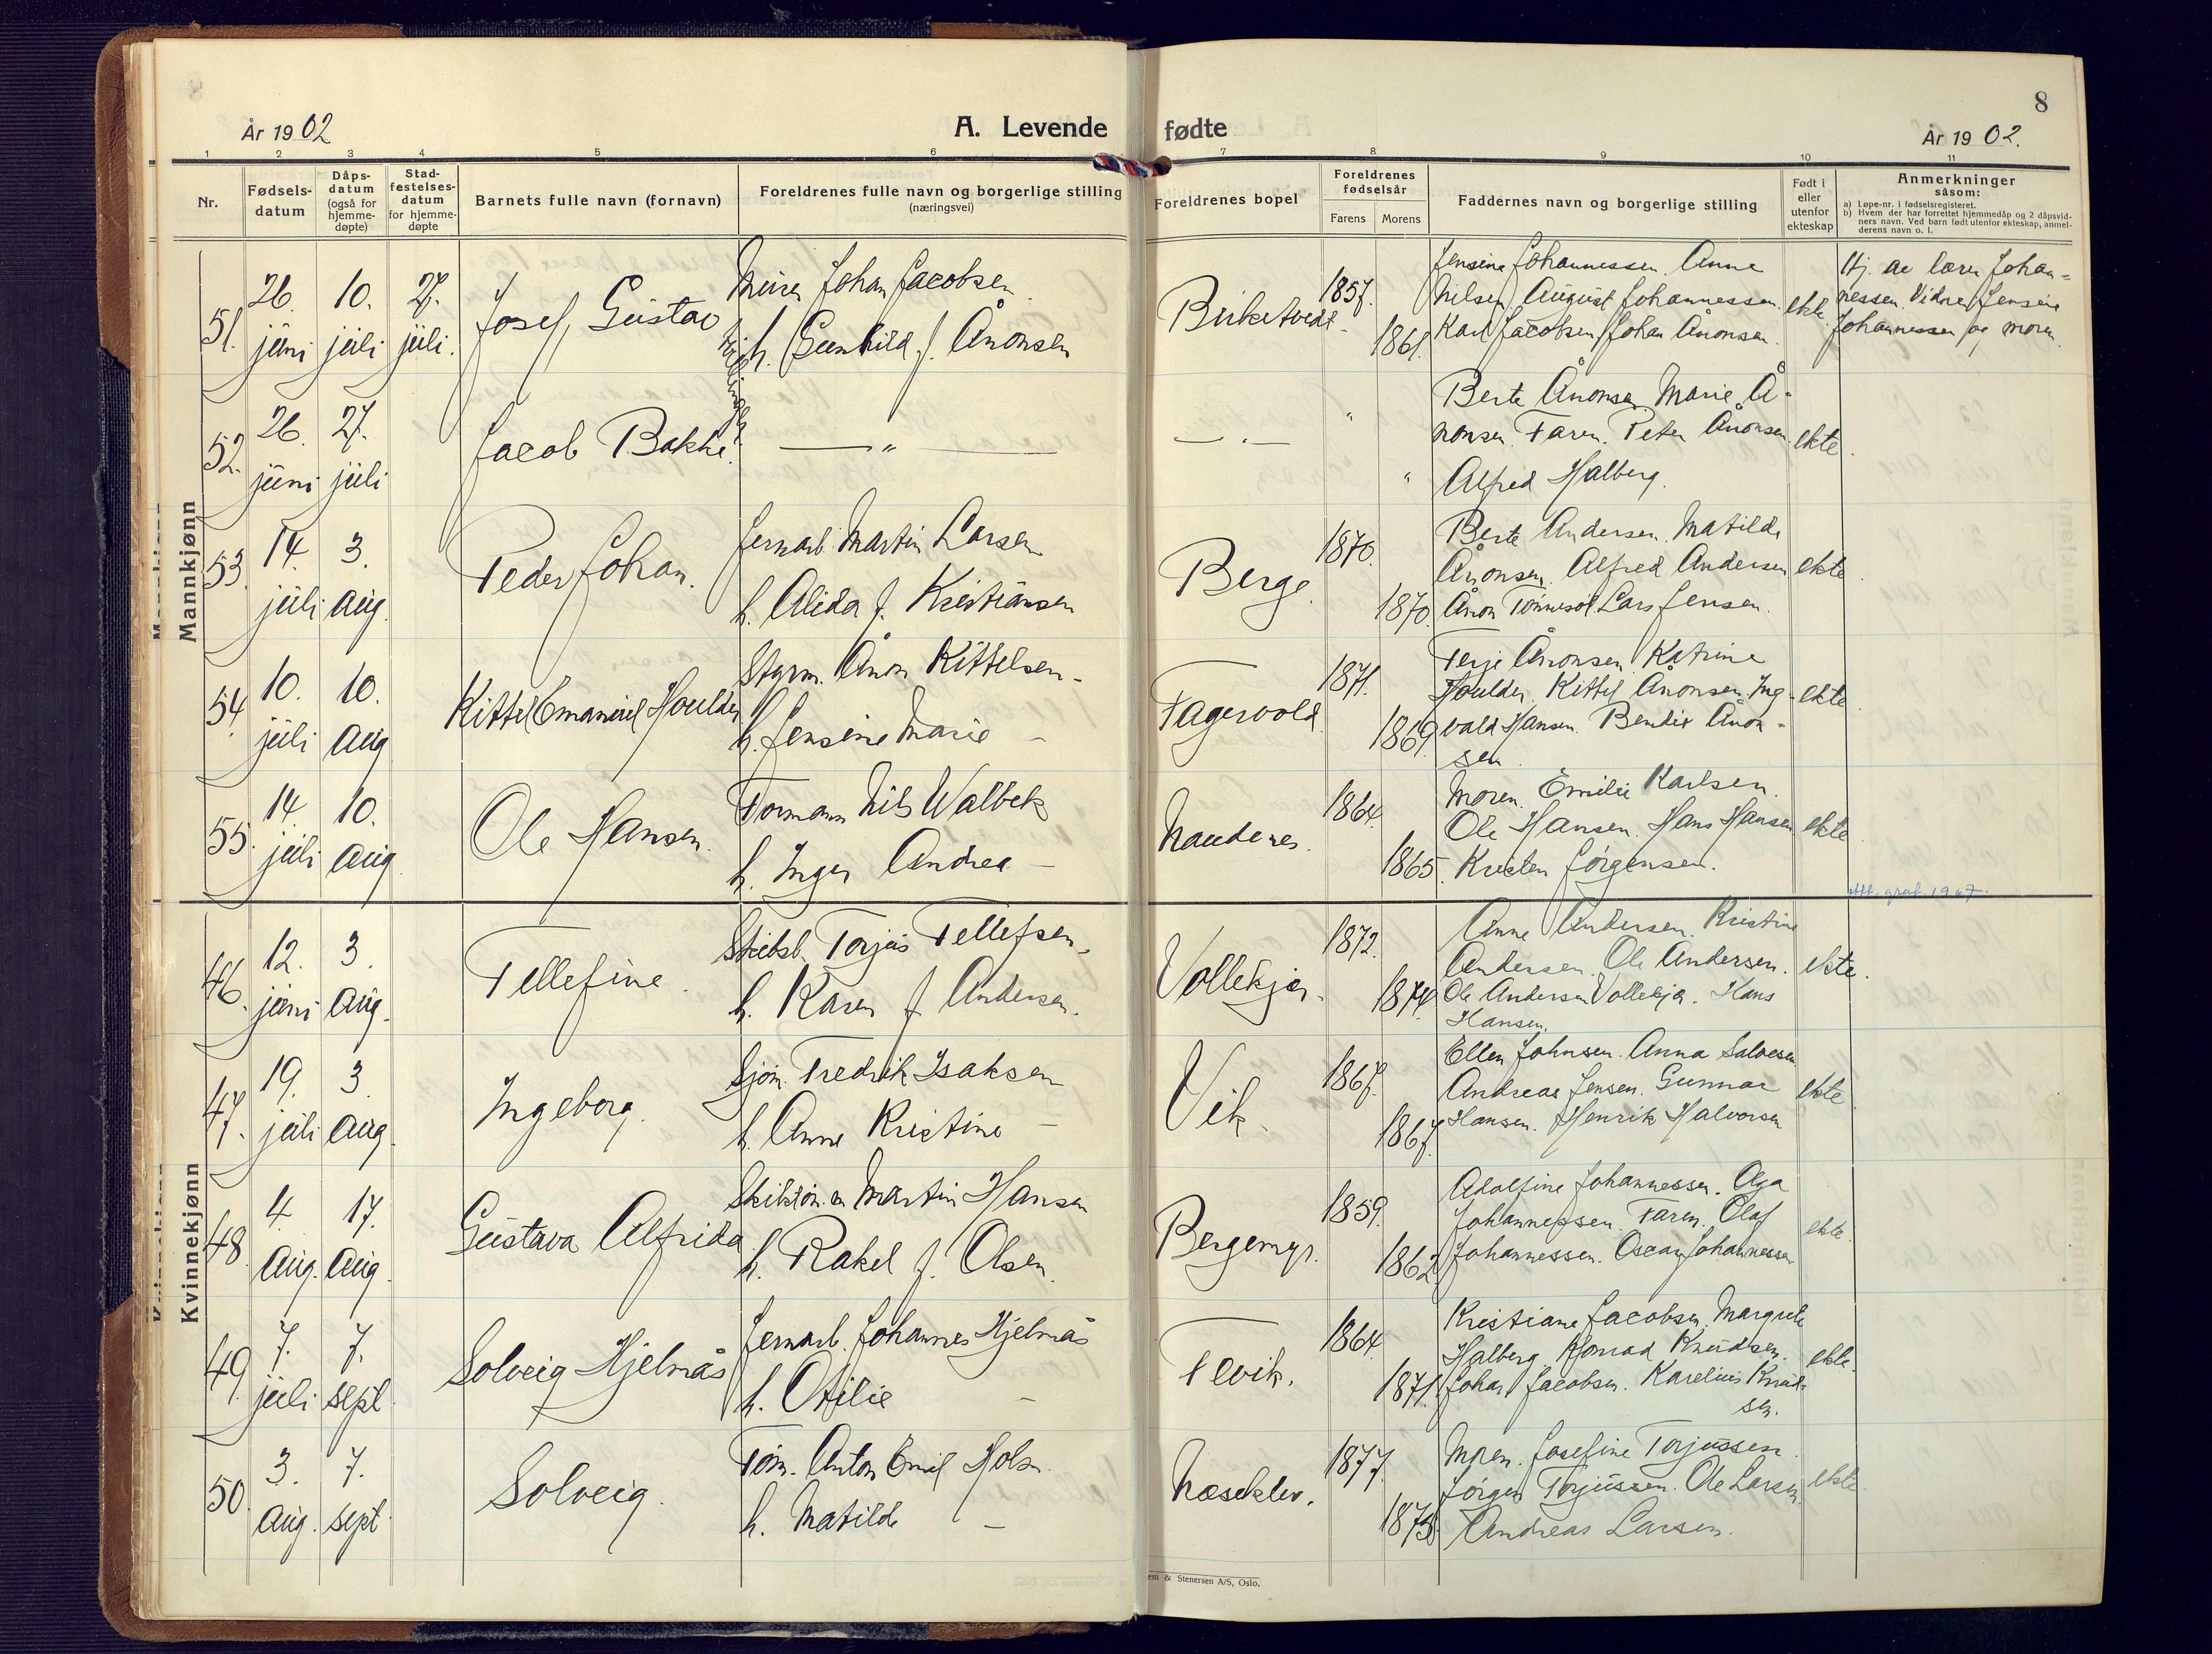 8
År 1902
A. Levende fødte
År 1902.
1 2 3 4 5 6 7 8 9 10 11
Nr.
Fødsels-
datum
Dåps-
datum
(også for
hjemme-
døpte)
Stad-
festelses-
datum
for hjemme-
døpte
Barnets fulle navn (fornavn)
Foreldrenes fulle navn og borgerlige stilling
(næringsvei)
Foreldrenes bopel
Foreldrenes
fødselsår
Farens Morens
Faddernes navn og borgerlige stilling
Født i
eller
utenfor
ekteskap
Anmerkninger
såsom:
a) Løpe-nr. i fødselsregisteret.
b) Hvem der har forrettet hjemmedåp og 2 dåpsvid-
ners navn. Ved barn født utenfor ekteskap, anmel-
derens navn o. l.
Mannkjønn
51.
26. juni
10. juli
27. juli.
Josef Gustav
Murer Johan Jacobsen
h. Gunhild f. Ånonsen
tvillinger
Birketvedt
1857.
1861.
Jensine Johannessen. Anne
Nilsen August Johannessen.
Karl Jacobsen Johan Ånonsen.
ekte
Hj. av lærer Johan-
nessen. Vidner Jensine
Johannessen og moren
52.
26. juni
27. juli
Jacob Bakke.
— " —
— " —
"
"
Berte Ånonsen. Marie Å-
nonsen. Faren. Peter Ånonsen
Alfred Halberg.
ekte
53.
14. juli
3. Aug.
Peder Johan.
Jernarb. Martin Larsen
h. Alida f. Kristiansen
Berge.
1870.
1870.
Berte Andersen. Matilde
Ånonsen. Alfred Andersen
Ånon Tønnesøl Lars Jensen.
ekte
54.
10. juli
10. Aug
Kittel Emanuel Houlder
Styrm. Ånon Kittelsen-
h. Jensine Marie -
Fagervold.
1871.
1869
Terje Ånonsen Katrine
Houlder. Kittel Ånonsen. Ing-
vald Hansen. Bendix Ånon-
sen.
ekte
55.
14. juli
10. Aug
Ole Hansen.
Formann Nils Walbek
h. Inger Andrea -
Naudenes.
1864.
1865.
Moren. Emilie Karlsen.
Ole Hansen. Hans Hansen
Kristen Jørgensen.
ekte
1947.
Kvinnekjønn
46.
12. juni
3. Aug.
Tellefine.
Skibsb. Torjus Tellefsen,
h. Karen f Andersen.
Vollekjær.
1872.
1874.
Anne Andersen. Kristine
Andersen. Ole Andersen.
Ole Andersen Vollekjær. Hans
Hansen.
ekte.
47.
19. juli
3. Aug.
Ingeborg.
Sjøm. Fredrik Isaksen
h. Anne Kristine -
Vik.
1867.
1867.
Ellen Johnsen. Anna Salvesen
Andreas Jensen. Gunnar
Hansen. Henrik Halvorsen
ekte
48
4. Aug.
17. Aug.
Gustava Alfrida
Martin Hansen
h. Rakel f. Olsen.
Bergemyr.
1859.
1862.
Adolfine Johannessen. Olga
Johannessen. Faren. Olaf
Johannessen. Oscar Johannessen
ekte.
49.
7. juli
7. sept.
Solveig Hjelmås
Jernarb. Johannes Hjelmås
h. Otilie -
Fevik.
1864.
1871.
Kristiane Jacobsen. Margrete
Halberg. Konrad Knudsen.
Johan Jacobsen. Karelius Knud-
sen.
ekte.
50.
3. Aug.
7. sept.
Solveig.
Tøm. Anton Emil Holm
h. Matilde -
Næseklev.
1877.
1875.
Moren. Josefine Torjussen.
Jørgen Torjussen. Ole Larsen.
Andreas Larsen.
ekte.
em & Stenersen A/S, Oslo.